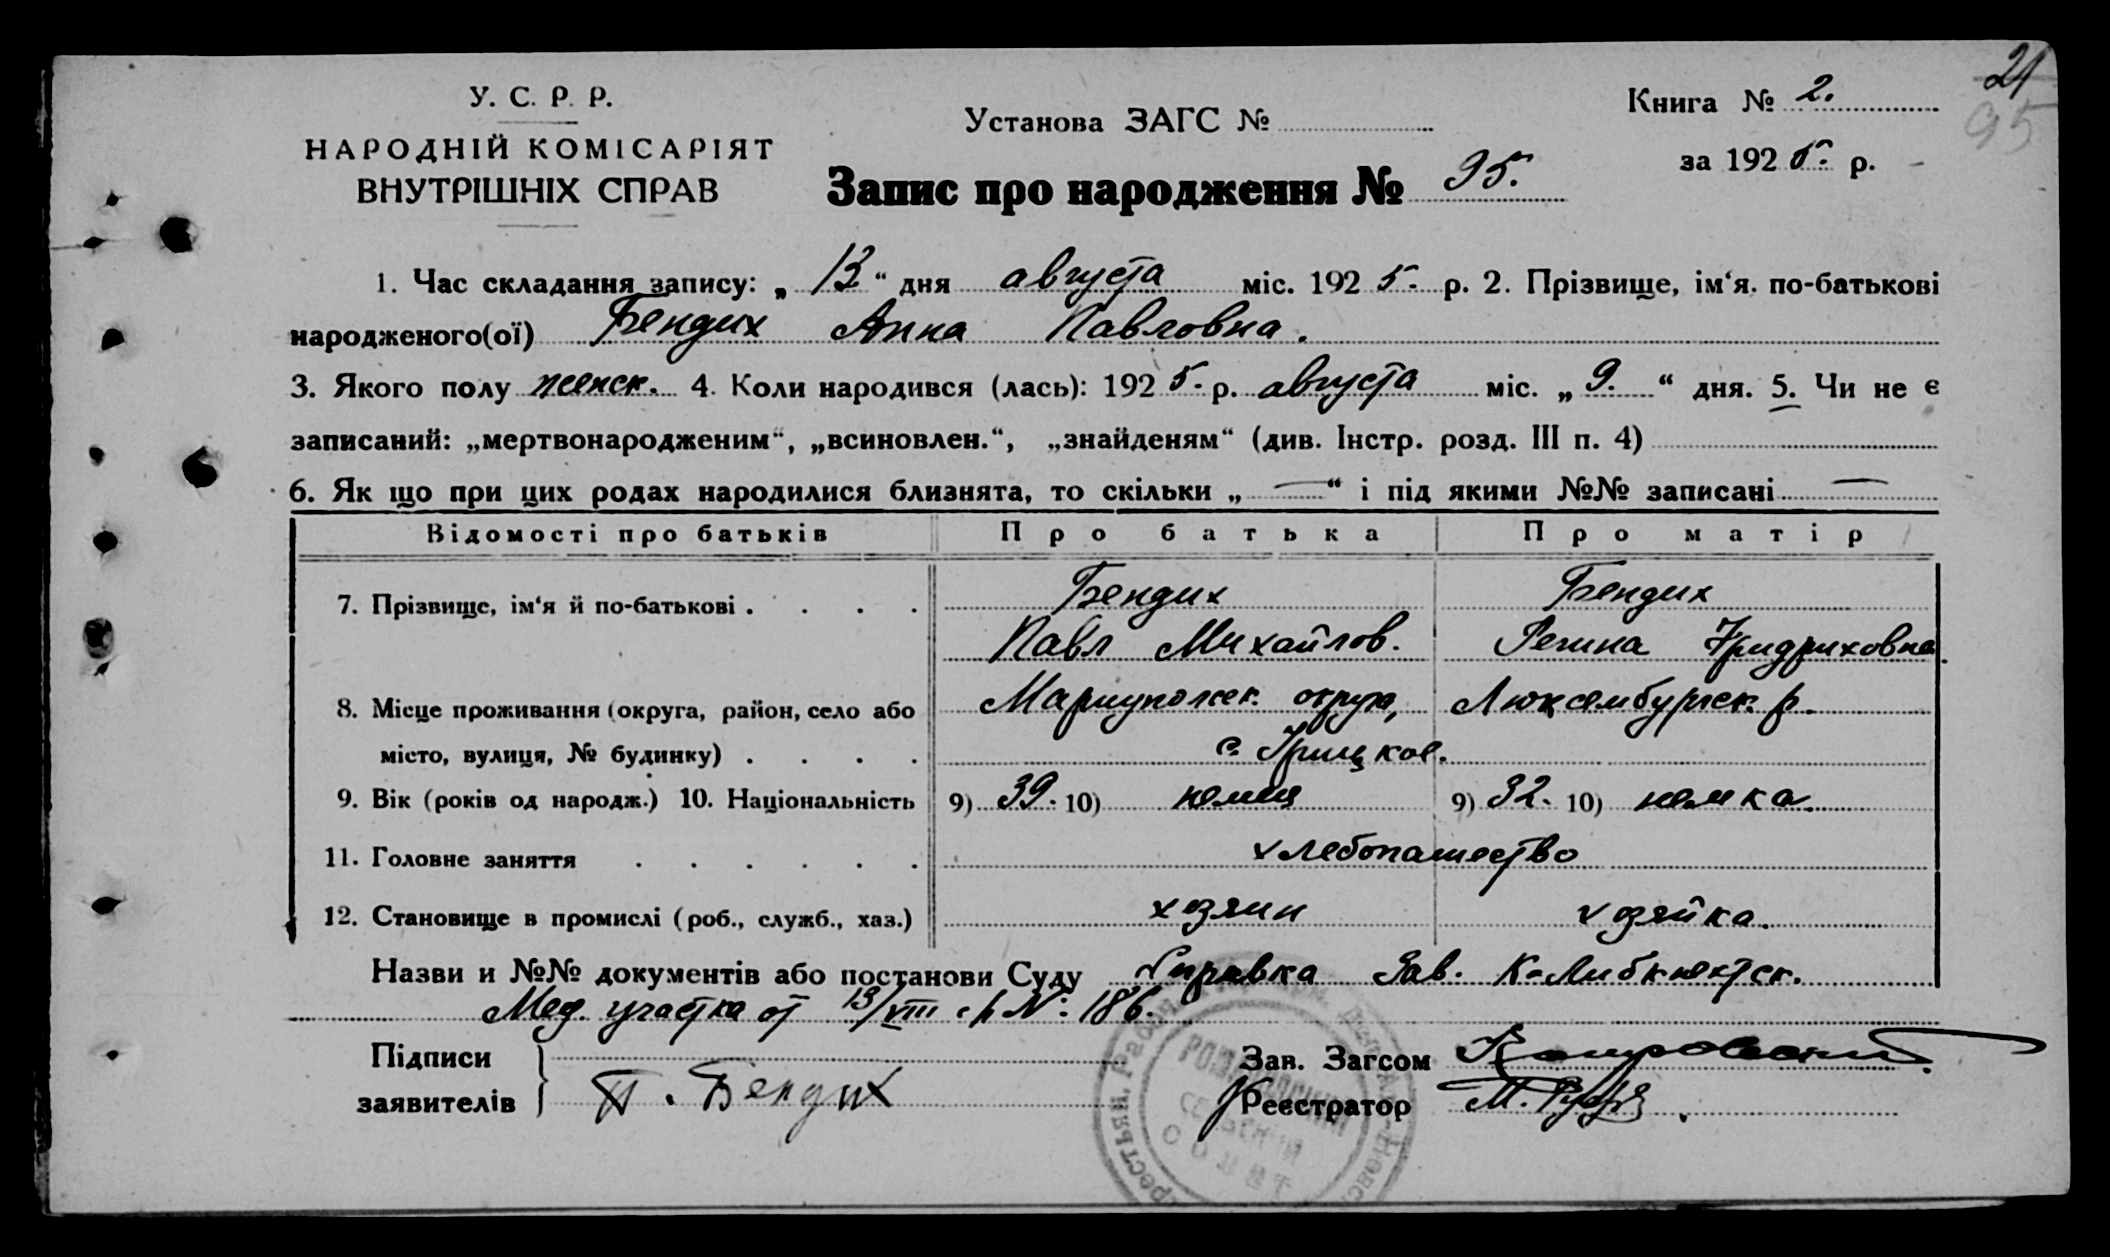 21
У. С. Р. Р.
Книга № 2.
95
Установа ЗАГС №
НАРОДНІЙ КОМІСАРІЯТ
за 1925. р.
ВНУТРІШНІХ СПРАВ
Запис про народження № 95.
1. Час складання запису: „ 13 “ дня августа міс. 1925. р. 2. Прізвище, ім‘я. по-батькові
народженого(ої) Бендих Анна Павловна.
3. Якого полу женск. 4. Коли народився (лась): 1925. р. августа міс. „ 9. “ дня. 5. Чи не є
записаний: „мертвонародженим“, „всиновлен.“, „знайденям“ (див. Інстр. розд. III п. 4)
6. Як що при цих родах народилися близнята, то скільки „ — “ і під якими №№ записані —
Відомості про батьків Про батька Про матір
7. Прізвище, ім‘я й по-батькові . . . . Бендих Бендих
Павл Михайлов. Регина Фридриховна.
8. Місце проживання (округа, район, село або Мариупольск. округа, Люксембургск. р.
місто, вулиця, № будинку) . . . . с.
9. Вік (років од народж.) 10. Національність 9) 39. 10) немец 9) 32. 10) немка.
11. Головне заняття . . . . . . хлебопашество
12. Становище в промислі (роб., служб., хаз.) хозяин хозяйка.
Назви и №№ документів або постанови Суду Справка Зав. К-Либкнехтск.
Мед. участка от 13/VIII с/г №: 186.
Підписи
заявителів } П. Бендих
Зав. Загсом
Реестратор М.
СЕЛЬСКИЙ
СОВЕТ